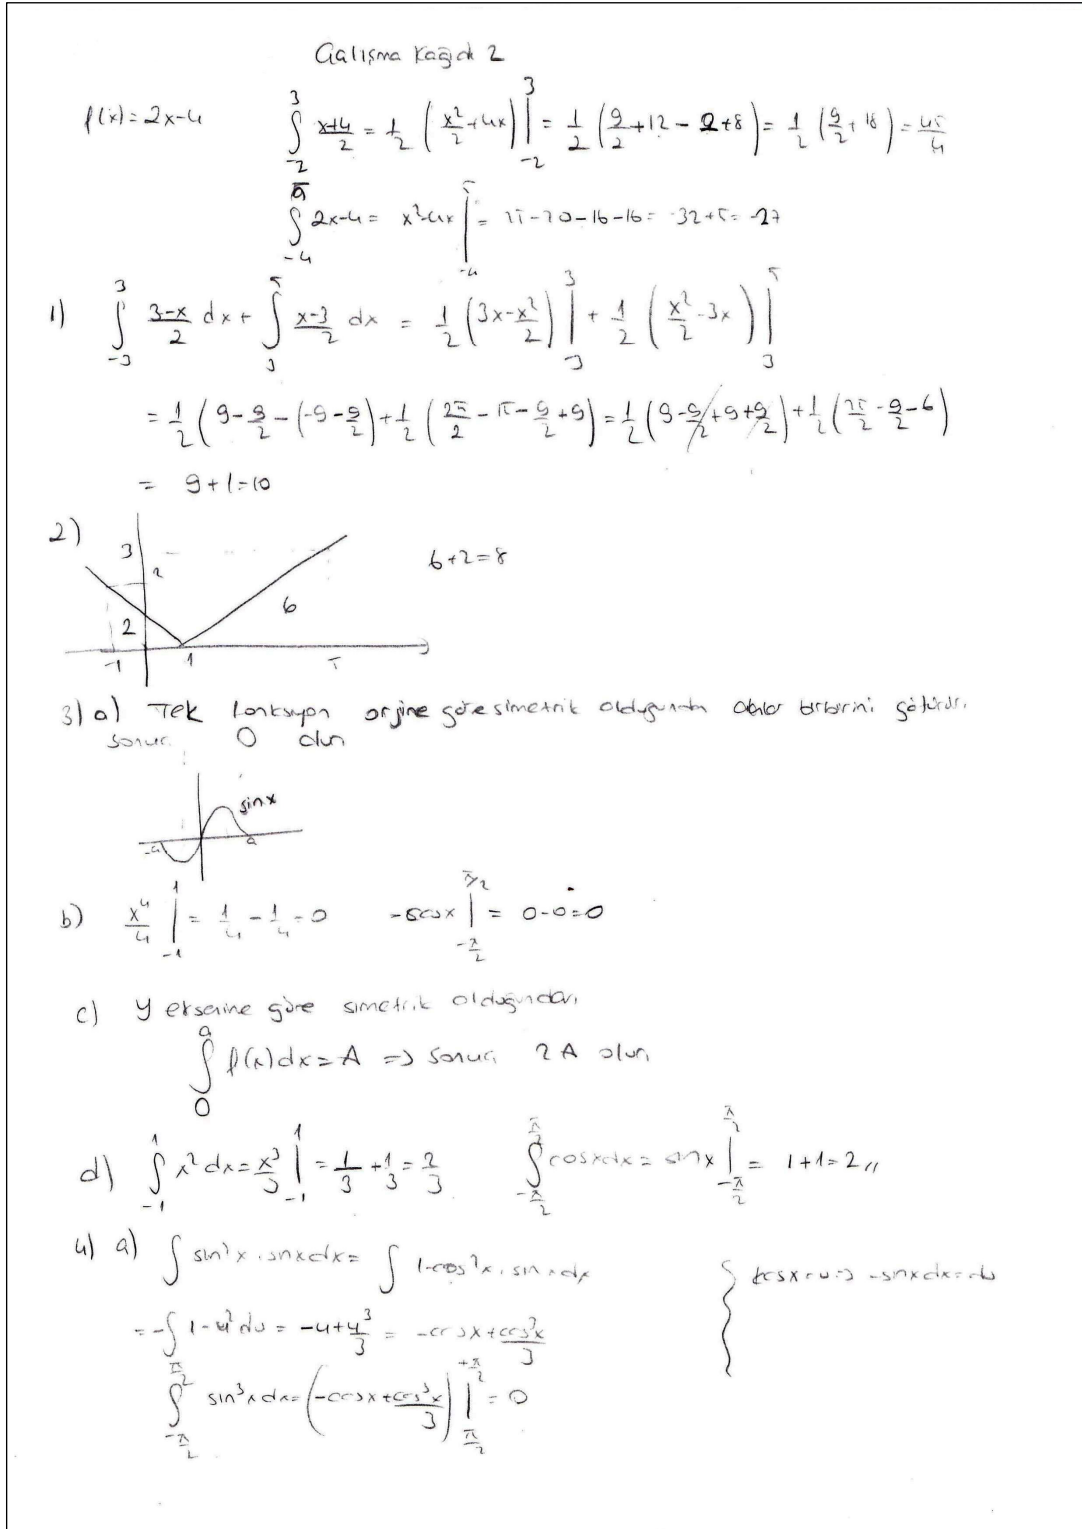 Çalışma Kağıdı 2
f(x)=2x-4
∫_{-2}^{3} (x+4)/2 = 1/2 (x²/2+4x) |_{-2}^{3} = 1/2 (9/2+12-2+8) = 1/2 (9/2+18) = 45/4
∫_{-4}^{5} 2x-4 = x²-4x |_{-4}^{5} = 25-20-16-16 = -32+5 = -27
1) ∫_{-3}^{3} (3-x)/2 dx + ∫_{3}^{5} (x-3)/2 dx = 1/2 (3x-x²/2) |_{-3}^{3} + 1/2 (x²/2-3x) |_{3}^{5}
= 1/2 (9-9/2-(-9-9/2) + 1/2 (25/2-15-9/2+9) = 1/2 (9-9/2+9+9/2) + 1/2 (25/2-9/2-6)
= 9+1=10
2)
3
2
6+2=8
6
2
-1 1 5
3) a) Tek fonksiyon orjine göre simetrik olduğundan alanlar birbirini götürür.
sonuç 0 olur
sinx
-a a
b) x⁴/4 |_{-1}^{1} = 1/4 - 1/4 = 0 -cosx |_{-π/2}^{π/2} = 0-0=0
c) y eksenine göre simetrik olduğundan
∫_{0}^{a} f(x)dx=A => sonuç 2A olur
d) ∫_{-1}^{1} x² dx = x³/3 |_{-1}^{1} = 1/3 + 1/3 = 2/3 ∫_{-π/2}^{π/2} cosxdx = sinx |_{-π/2}^{π/2} = 1+1=2//
4) a) ∫ sin²x.sinxdx = ∫ 1-cos²x.sinxdx { cosx=u => -sinxdx=du
= -∫ 1-u² du = -u+u³/3 = -cosx+cos³x/3
∫_{-π/2}^{π/2} sin³xdx = (-cosx+cos³x/3) |_{π/2}^{+π/2} = 0